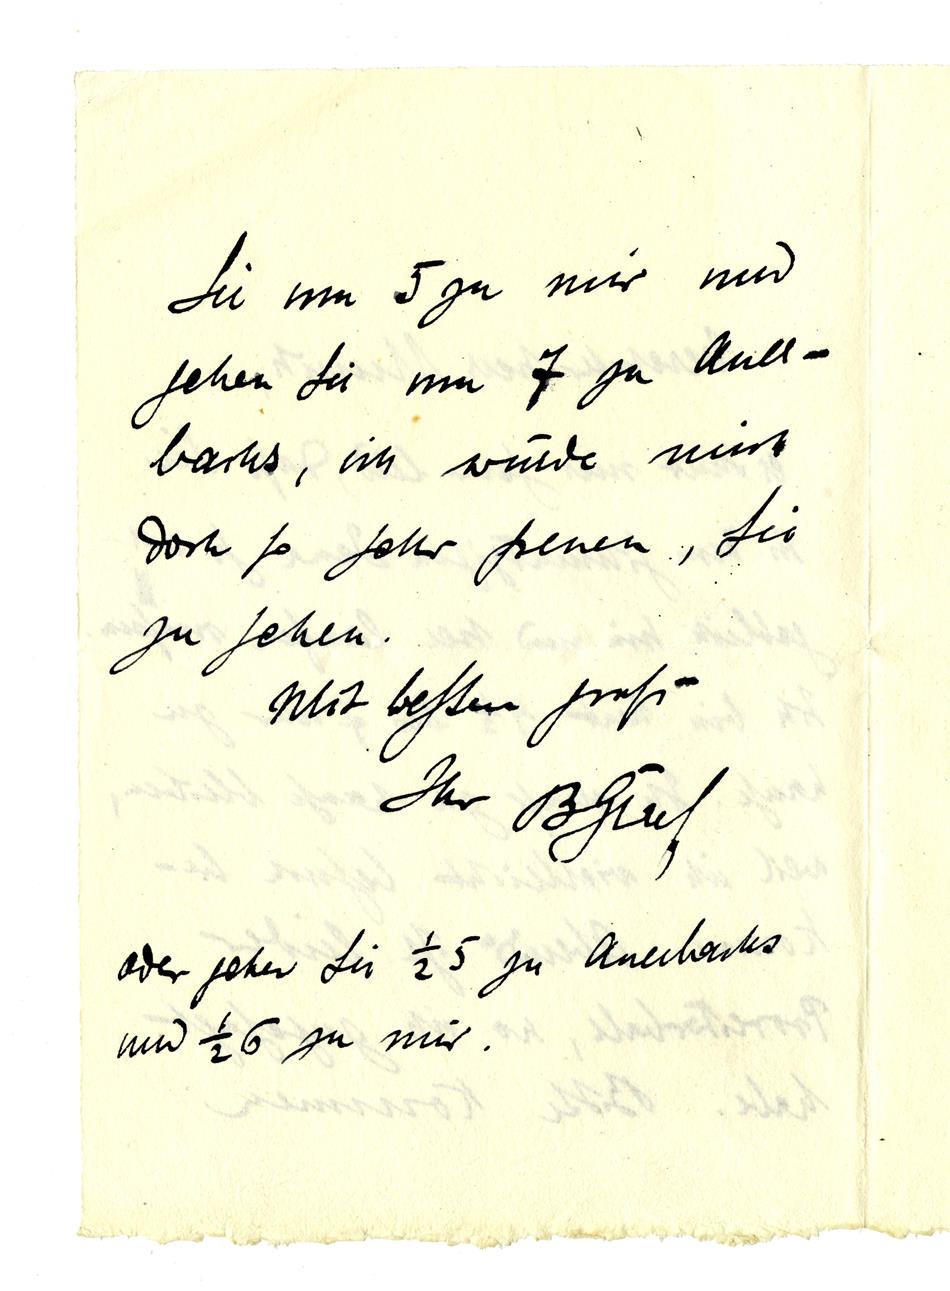 Sie um 5 zu mir und
gehen Sie um 7 zu Auer-
bachs, ich würde mich
doch so sehr freuen, Sie
zu sehen.
Mit bestem Gruß
Ihr BGräf
oder gehen Sie ½5 zu Auerbachs
und ½6 zu mir.